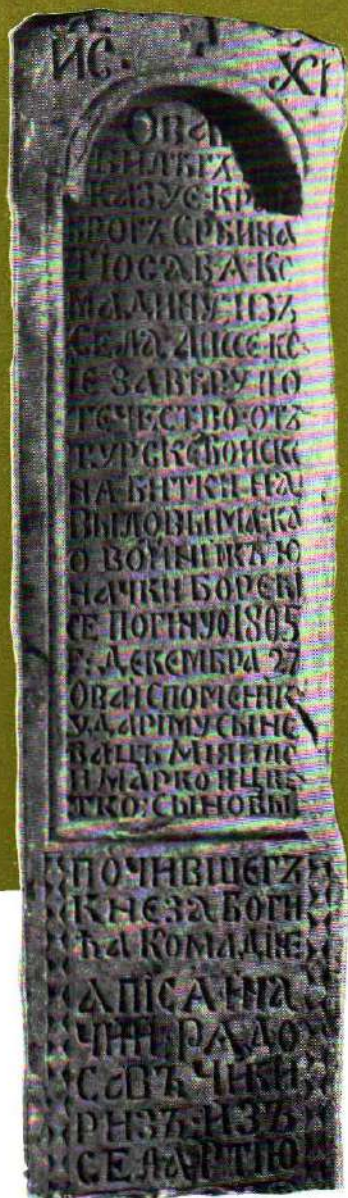 ИС. ХІ
ОВАІ
БИЛѢГЪ
КАЗУЄ
СРБИНА
МАДИНУ: ИЗЪ
СЕЛА
Е ЗА ВѢРУ ПО
ТЕЧЕСТВО: ОТЪ
ТУРСКЕ ВОЙСКЕ
НА БИТКИ НА
ВЫЛОВЫМА: КА
О ВОЙНИКЪ Ю
НАЧКИ БОРЕЋИ
СЕ ПОГИНУО 1805
Г: ДЕКЕМБРА 27
ОВАЙ СПОМЕНИК
УДАРІ МУ СЫНО
ВАЦЪ МІЯИЛО
И МАРКО И ЦВЕ
ТКО: СЫНОВЫ
ПОЧИВШЕГЪ
КНЕЗА БОГИ
ЋА КОМАДІНЕ
АПІСА И НА
ЧИНИ: РАДО
САВЪ ЧИКИ
РИЗЪ: ИЗЪ
СЕЛА РТІЮ